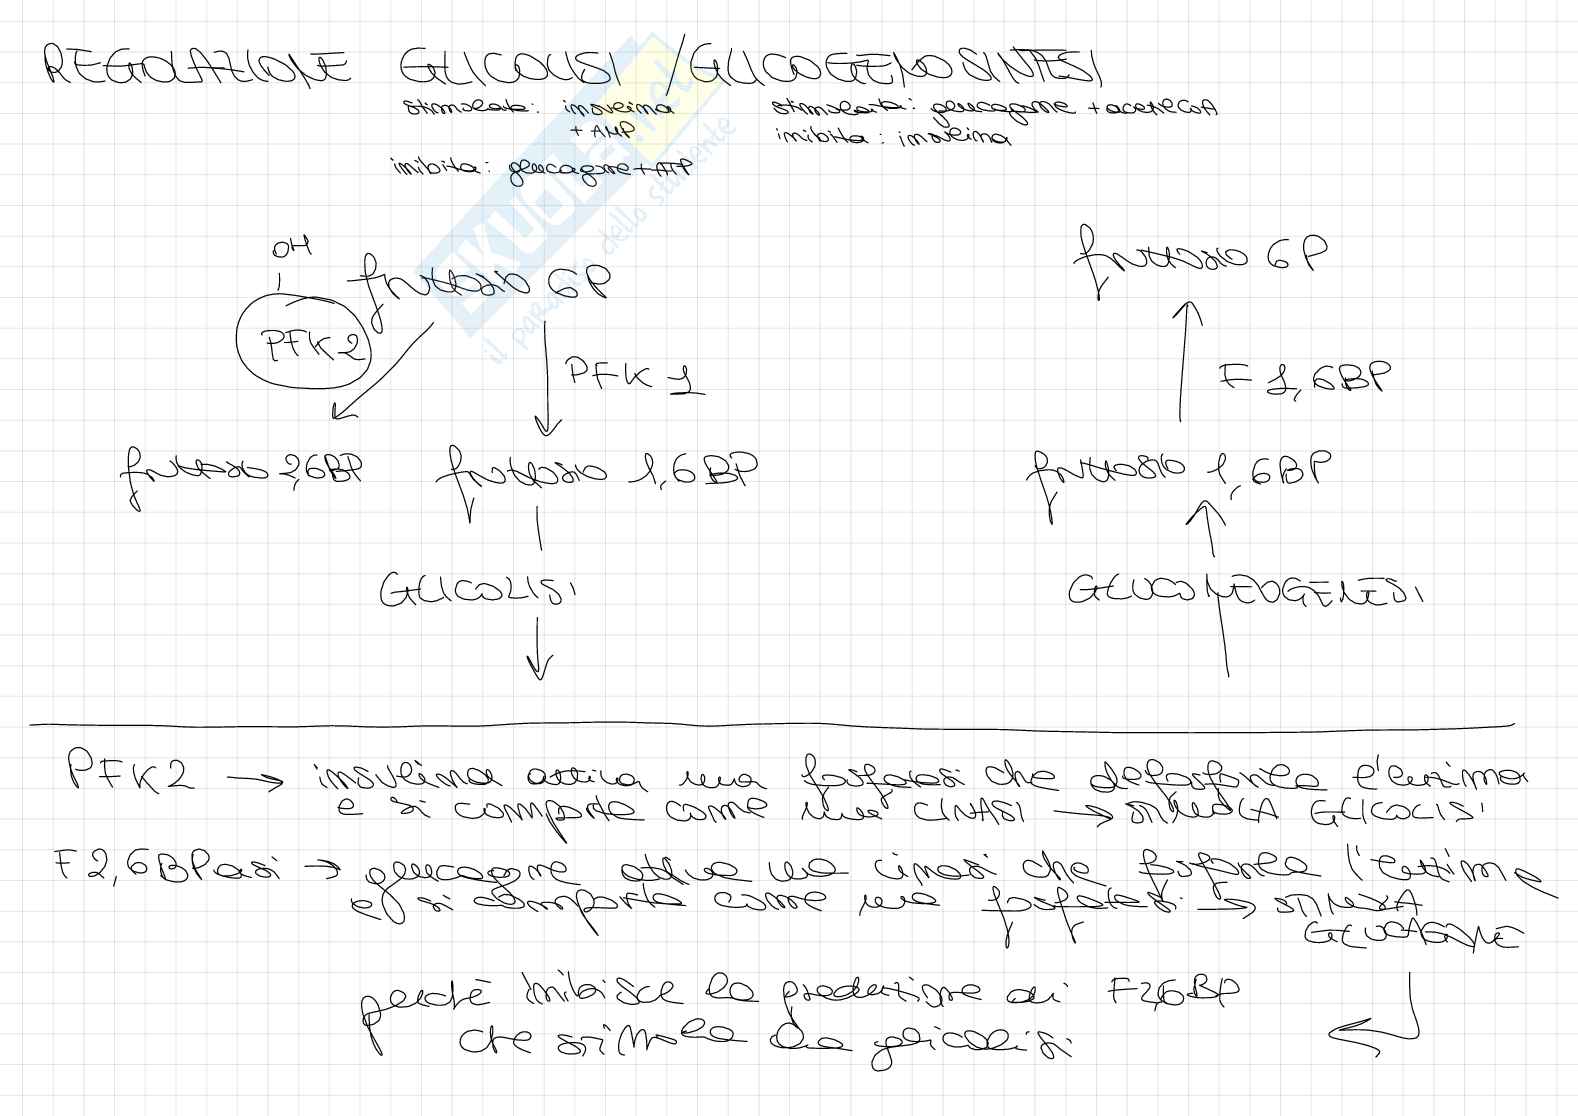 REGOLAZIONE GLICOLISI / GLICOGENOSINTESI
stimolata: insulina + AMP
inibita: glucagone + ATP
stimolata: glucagone + acetilCoA
inibita: insulina
OH
PFK2
fruttosio 6P
PFK 1
fruttosio 2,6BP
fruttosio 1,6BP
GLICOLISI
fruttosio 6P
F 1,6BP
fruttosio 1,6BP
GLUCONEOGENESI
PFK2 → insulina attiva una fosfatasi che defosforila l'enzima
e si comporta come una CINASI → STIMOLA GLICOLISI
F2,6BPasi → glucagone attiva una cinasi che fosforila l'enzima
e si comporta come una fosfatasi → STIMOLA
GLUCAGONE
perchè inibisce la produzione di F2,6BP
che stimola la glicolisi
SKUOLA.net
il paradiso dello studente